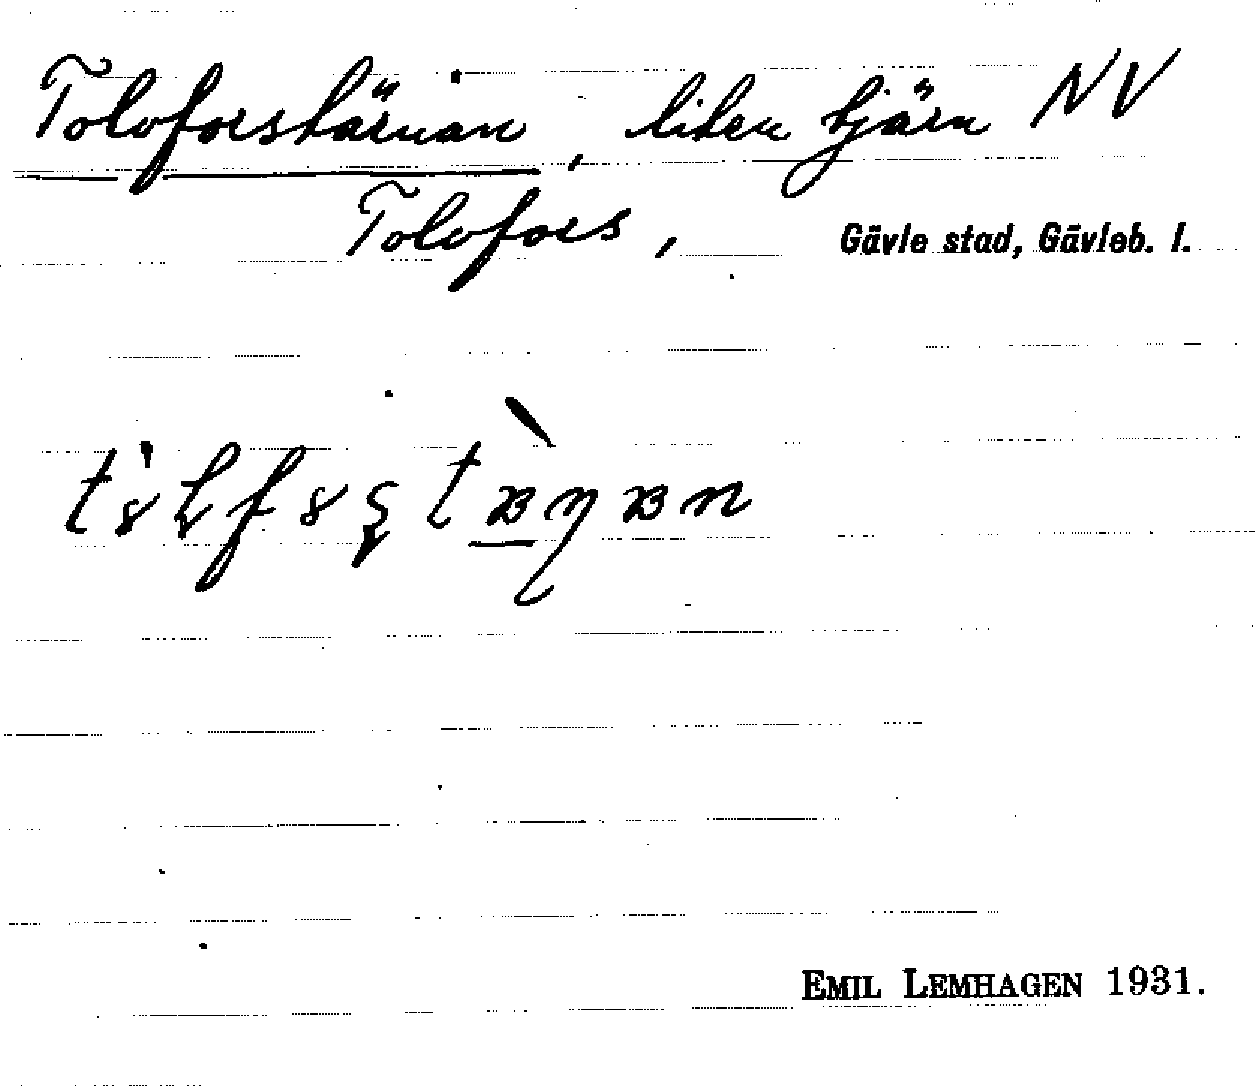 Tolvforstärnan, liten tjärn NV
Tolvfors, Gävle stad, Gävleb. l.
EMIL LEMHAGEN 1931.